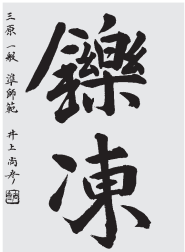 鑠凍
三原 一般 準師範 井上尚彦